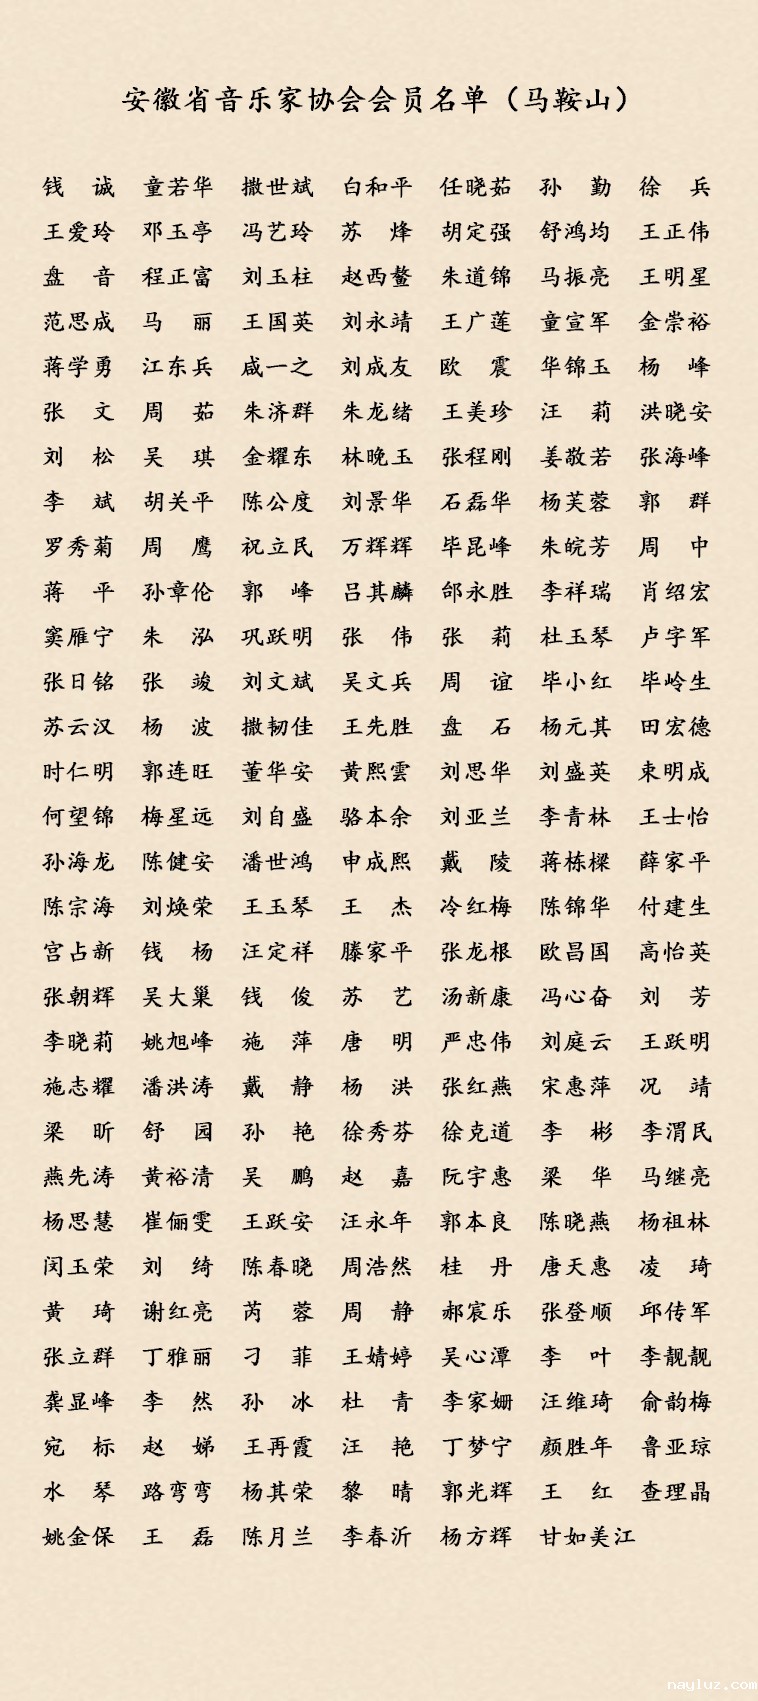 安徽省音乐家协会会员名单（马鞍山）
钱　诚　童若华　撒世斌　白和平　任晓茹　孙　勤　徐　兵
王爱玲　邓玉亭　冯艺玲　苏　烽　胡定强　舒鸿均　王正伟
盘　音　程正富　刘玉柱　赵西鳌　朱道锦　马振亮　王明星
范思成　马　丽　王国英　刘永靖　王广莲　童宣军　金崇裕
蒋学勇　江东兵　戚一之　刘成友　欧　震　华锦玉　杨　峰
张　文　周　茹　朱济群　朱龙绪　王美珍　汪　莉　洪晓安
刘　松　吴　琪　金耀东　林晚玉　张程刚　姜敬若　张海峰
李　斌　胡关平　陈公度　刘景华　石磊华　杨芙蓉　郭　群
罗秀菊　周　鹰　祝立民　万辉辉　毕昆峰　朱皖芳　周　中
蒋　平　孙章伦　郭　峰　吕其麟　邰永胜　李祥瑞　肖绍宏
窦雁宁　朱　泓　巩跃明　张　伟　张　莉　杜玉琴　卢字军
张日铭　张　竣　刘文斌　吴文兵　周　谊　毕小红　毕岭生
苏云汉　杨　波　撒韧佳　王先胜　盘　石　杨元其　田宏德
时仁明　郭连旺　董华安　黄熙雲　刘思华　刘盛英　束明成
何望锦　梅星远　刘自盛　骆本余　刘亚兰　李青林　王士怡
孙海龙　陈健安　潘世鸿　申成熙　戴　陵　蒋栋樑　薛家平
陈宗海　刘焕荣　王玉琴　王　杰　冷红梅　陈锦华　付建生
宫占新　钱　杨　汪定祥　滕家平　张龙根　欧昌国　高怡英
张朝辉　吴大巢　钱　俊　苏　艺　汤新康　冯心奋　刘　芳
李晓莉　姚旭峰　施　萍　唐　明　严忠伟　刘庭云　王跃明
施志耀　潘洪涛　戴　静　杨　洪　张红燕　宋惠萍　况　靖
梁　昕　舒　园　孙　艳　徐秀芬　徐克道　李　彬　李渭民
燕先涛　黄裕清　吴　鹏　赵　嘉　阮宇惠　梁　华　马继亮
杨思慧　崔俪雯　王跃安　汪永年　郭本良　陈晓燕　杨祖林
闵玉荣　刘　绮　陈春晓　周浩然　桂　丹　唐天惠　凌　琦
黄　琦　谢红亮　芮　蓉　周　静　郝宸乐　张登顺　邱传军
张立群　丁雅丽　刁　菲　王婧婷　吴心潭　李　叶　李靓靓
龚显峰　李　然　孙　冰　杜　青　李家姗　汪维琦　俞韵梅
宛　标　赵　娣　王再霞　汪　艳　丁梦宁　颜胜年　鲁亚琼
水　琴　路弯弯　杨其荣　黎　晴　郭光辉　王　红　查理晶
姚金保　王　磊　陈月兰　李春沂　杨方辉　甘如美江
nayluz.com